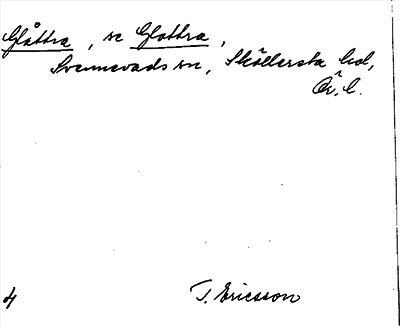 Glåttra, se Glottra,
Svennevads sn, Sköllersta hd,
Ör. l.
4
T. Ericsson